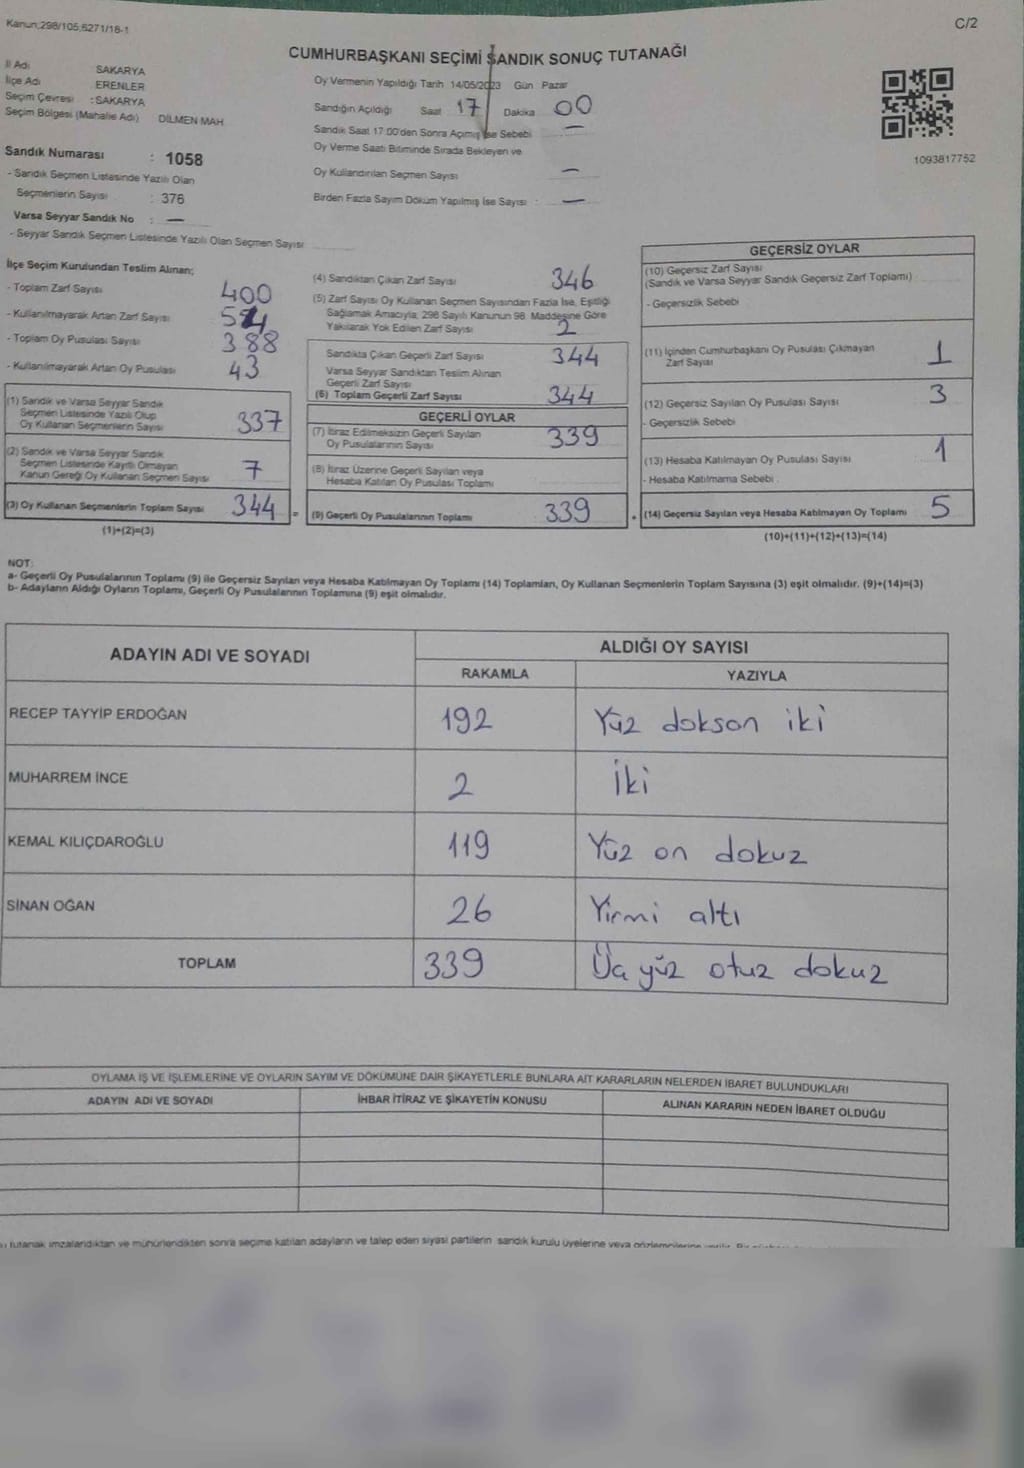 Kanun;298/105;6271/18-1
C/2
CUMHURBAŞKANI SEÇİMİ SANDIK SONUÇ TUTANAĞI
İl Adı SAKARYA
İlçe Adı ERENLER
Seçim Çevresi : SAKARYA
Seçim Bölgesi (Mahalle Adı) DİLMEN MAH
Sandık Numarası : 1058
- Sandık Seçmen Listesinde Yazılı Olan
Seçmenlerin Sayısı : 376
Varsa Seyyar Sandık No : —
- Seyyar Sandık Seçmen Listesinde Yazılı Olan Seçmen Sayısı
Oy Vermenin Yapıldığı Tarih 14/05/2023 Gün Pazar
Sandığın Açıldığı Saat 17 Dakika 00
Sandık Saat 17:00'den Sonra Açılmış İse Sebebi —
Oy Verme Saati Bitiminde Sırada Bekleyen ve
Oy Kullandırılan Seçmen Sayısı —
Birden Fazla Sayım Döküm Yapılmış İse Sayısı : —
1093817752
İlçe Seçim Kurulundan Teslim Alınan;
- Toplam Zarf Sayısı 400
- Kullanılmayarak Artan Zarf Sayısı
- Toplam Oy Pusulası Sayısı 388
- Kullanılmayarak Artan Oy Pusulası 43
(1) Sandık ve Varsa Seyyar Sandık
Seçmen Listesinde Yazılı Olup
Oy Kullanan Seçmenlerin Sayısı 337
(2) Sandık ve Varsa Seyyar Sandık
Seçmen Listesinde Kayıtlı Olmayan
Kanun Gereği Oy Kullanan Seçmen Sayısı 7
(3) Oy Kullanan Seçmenlerin Toplam Sayısı 344 =
(1)+(2)=(3)
(4) Sandıktan Çıkan Zarf Sayısı 346
(5) Zarf Sayısı Oy Kullanan Seçmen Sayısından Fazla İse, Eşitliği
Sağlamak Amacıyla, 298 Sayılı Kanunun 98. Maddesine Göre
Yakılarak Yok Edilen Zarf Sayısı 2
Sandıkta Çıkan Geçerli Zarf Sayısı 344
Varsa Seyyar Sandıktan Teslim Alınan
Geçerli Zarf Sayısı
(6) Toplam Geçerli Zarf Sayısı 344
GEÇERLİ OYLAR
(7) İtiraz Edilmeksizin Geçerli Sayılan
Oy Pusulalarının Sayısı 339
(8) İtiraz Üzerine Geçerli Sayılan veya
Hesaba Katılan Oy Pusulası Toplamı
(9) Geçerli Oy Pusulalarının Toplamı 339 +
GEÇERSİZ OYLAR
(10) Geçersiz Zarf Sayısı
(Sandık ve Varsa Seyyar Sandık Geçersiz Zarf Toplamı)
- Geçersizlik Sebebi
(11) İçinden Cumhurbaşkanı Oy Pusulası Çıkmayan
Zarf Sayısı 1
(12) Geçersiz Sayılan Oy Pusulası Sayısı 3
- Geçersizlik Sebebi
(13) Hesaba Katılmayan Oy Pusulası Sayısı 1
- Hesaba Katılmama Sebebi :
(14) Geçersiz Sayılan veya Hesaba Katılmayan Oy Toplamı 5
(10)+(11)+(12)+(13)=(14)
NOT:
a- Geçerli Oy Pusulalarının Toplamı (9) ile Geçersiz Sayılan veya Hesaba Katılmayan Oy Toplamı (14) Toplamları, Oy Kullanan Seçmenlerin Toplam Sayısına (3) eşit olmalıdır. (9)+(14)=(3)
b- Adayların Aldığı Oyların Toplamı, Geçerli Oy Pusulalarının Toplamına (9) eşit olmalıdır.
ADAYIN ADI VE SOYADI ALDIĞI OY SAYISI
RAKAMLA YAZIYLA
RECEP TAYYİP ERDOĞAN 192 Yüz doksan iki
MUHARREM İNCE 2 İki
KEMAL KILIÇDAROĞLU 119 Yüz on dokuz
SİNAN OĞAN 26 Yirmi altı
TOPLAM 339 Üç yüz otuz dokuz
OYLAMA İŞ VE İŞLEMLERİNE VE OYLARIN SAYIM VE DÖKÜMÜNE DAİR ŞİKAYETLERLE BUNLARA AİT KARARLARIN NELERDEN İBARET BULUNDUKLARI
ADAYIN ADI VE SOYADI İHBAR İTİRAZ VE ŞİKAYETİN KONUSU ALINAN KARARIN NEDEN İBARET OLDUĞU
tutanak imzalandıktan ve mühürlendikten sonra seçime katılan adayların ve talep eden siyasi partilerin sandık kurulu üyelerine veya gözlemcilerine verilir.